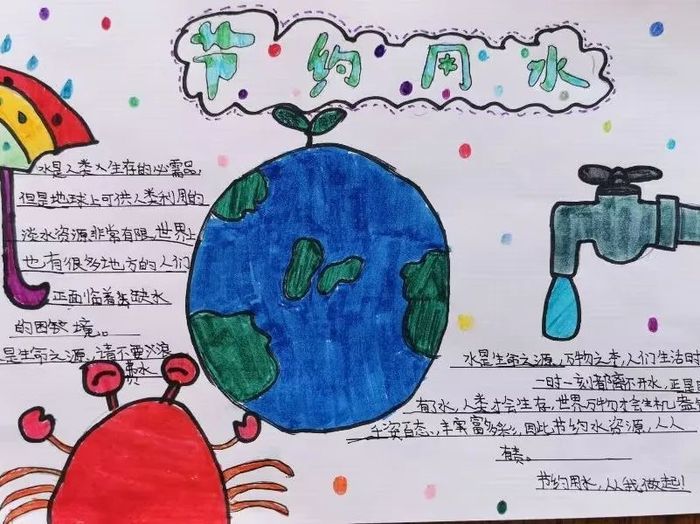 节约用水
水是人类人生存的必需品,
但是地球上可供人类利用的
淡水资源非常有限,世界上
也有很多地方的人们
正面临着缺水
的困境。
是生命之源,请不要浪
费水
水是生命之源,万物之本,人们生活时
一时一刻都离不开水,正是
有水,人类才会生存,世界万物才会生机
千资百态、丰富多彩,因此节约水资源,人人
有责。
节约用水,从我做起!